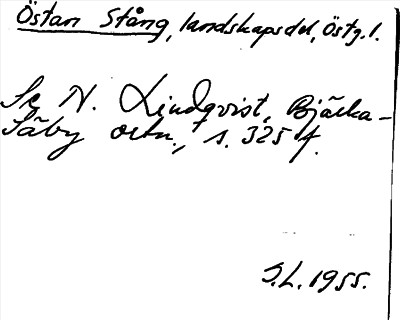 Östan Stång, landskapsdel, Östg.l.
Se N. Lindqvist, Bjärka-
Säby ortn., s. 325 f.
S.L. 1955.